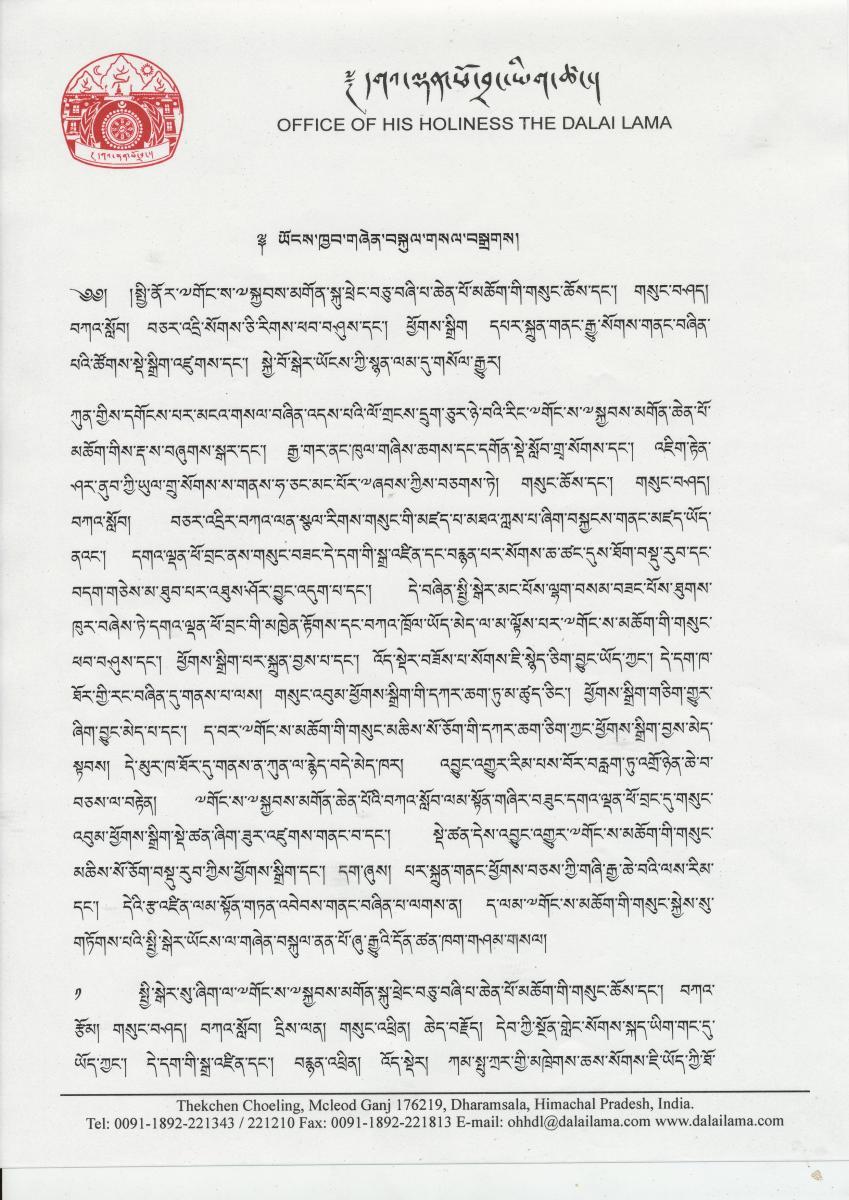 ༄ །གོང་ས་མཆོག་གི་ཡིག་ཚང་།
OFFICE OF HIS HOLINESS THE DALAI LAMA
༈ ཡོངས་ཁྱབ་གཞེན་བསྐུལ་གསལ་བསྒྲགས།
༄༅། །སྤྱི་ནོར་༸གོང་ས་༸སྐྱབས་མགོན་སྐུ་ཕྲེང་བཅུ་བཞི་པ་ཆེན་པོ་མཆོག་གི་གསུང་ཆོས་དང་། གསུང་བཤད།
བཀའ་སློབ། བཅར་འདྲི་སོགས་ཅི་རིགས་ཕབ་བཤུས་དང་། ཕྱོགས་སྒྲིག དཔར་སྐྲུན་གནང་རྒྱུ་སོགས་གནང་བཞིན་
པའི་ཚོགས་སྡེ་སྒྲིག་འཛུགས་དང་། སྐྱེ་བོ་སྒེར་ཡོངས་ཀྱི་སྙན་ལམ་དུ་གསོལ་རྒྱུར།
ཀུན་གྱིས་དགོངས་པར་མངའ་གསལ་བཞིན་འདས་པའི་ལོ་གྲངས་དྲུག་ཅུར་ཉེ་བའི་རིང་༸གོང་ས་༸སྐྱབས་མགོན་ཆེན་པོ་
མཆོག་གིས་རྡ་ས་བཞུགས་སྒར་དང་། རྒྱ་གར་ནང་ཁུལ་གཞིས་ཆགས་དང་དགོན་སྡེ་སློབ་གྲྭ་སོགས་དང་། འཇིག་རྟེན་
ཤར་ནུབ་ཀྱི་ཡུལ་གྲུ་སོགས་ས་གནས་ཧ་ཅང་མང་པོར་༸ཞབས་ཀྱིས་བཅགས་ཏེ། གསུང་ཆོས་དང་། གསུང་བཤད།
བཀའ་སློབ། བཅར་འདྲིར་བཀའ་ལན་སྩལ་རིགས་གསུང་གི་མཛད་པ་མཐའ་ཀླས་པ་ཞིག་བསྐྱངས་གནང་མཛད་ཡོད་
ནའང་། དགའ་ལྡན་ཕོ་བྲང་ནས་གསུང་བཟང་དེ་དག་གི་སྒྲ་འཛིན་དང་བརྙན་པར་སོགས་ཆ་ཚང་དུས་ཐོག་བསྡུ་རུབ་དང་
བདག་གཅེས་མ་ཐུབ་པར་འཐུས་ཤོར་བྱུང་འདུག་པ་དང་། དེ་བཞིན་སྤྱི་སྒེར་མང་པོས་ལྷག་བསམ་བཟང་པོས་ཐུགས་
ཁུར་བཞེས་ཏེ་དགའ་ལྡན་ཕོ་བྲང་གི་མཁྱེན་རྟོགས་དང་བཀའ་ཁྲོལ་ཡོད་མེད་ལ་མ་ལྟོས་པར་༸གོང་ས་མཆོག་གི་གསུང་
ཕབ་བཤུས་དང་། ཕྱོགས་སྒྲིག་པར་སྐྲུན་བྱས་པ་དང་། འོད་སྡེར་བཟོས་པ་སོགས་ཇི་སྙེད་ཅིག་བྱུང་ཡོད་ཀྱང་། དེ་དག་ཁ་
ཐོར་གྱི་རང་བཞིན་དུ་གནས་པ་ལས། གསུང་འབུམ་ཕྱོགས་སྒྲིག་གི་དཀར་ཆག་ཏུ་མ་ཚུད་ཅིང་། ཕྱོགས་སྒྲིག་གཅིག་གྱུར་
ཞིག་བྱུང་མེད་པ་དང་། ད་བར་༸གོང་ས་མཆོག་གི་གསུང་མཆིས་སོ་ཅོག་གི་དཀར་ཆག་ཅིག་ཀྱང་ཕྱོགས་སྒྲིག་བྱས་མེད་
སྟབས། དེ་མུར་ཁ་ཐོར་དུ་གནས་ན་ཀུན་ལ་རྙེད་བདེ་མེད་ཁར། འབྱུང་འགྱུར་རིམ་པས་བོར་བརླག་ཏུ་འགྲོ་ཉེན་ཆེ་བ་
བཅས་ལ་བརྟེན། ༸གོང་ས་༸སྐྱབས་མགོན་ཆེན་པོའི་བཀའ་སློབ་ལམ་སྟོན་གཞིར་བཟུང་དགའ་ལྡན་ཕོ་བྲང་དུ་གསུང་
འབུམ་ཕྱོགས་སྒྲིག་སྡེ་ཚན་ཞིག་ཟུར་འཛུགས་གནང་བ་དང་། སྡེ་ཚན་དེས་འབྱུང་འགྱུར་༸གོང་ས་མཆོག་གི་གསུང་
མཆིས་སོ་ཅོག་བསྡུ་རུབ་ཀྱིས་ཕྱོགས་སྒྲིག་དང་། དག་ཞུས། པར་སྐྲུན་གནང་ཕྱོགས་བཅས་ཀྱི་གཞི་རྒྱ་ཆེ་བའི་ལས་རིམ་
དང་། དེའི་རྩ་འཛིན་ལམ་སྟོན་གཏན་འབེབས་གནང་བཞིན་པ་ལགས་ན། ད་ལམ་༸གོང་ས་མཆོག་གི་གསུང་སྐྱེས་སུ་
གཏོགས་པའི་སྤྱི་སྒེར་ཡོངས་ལ་གཞེན་བསྐུལ་ནན་པོ་ཞུ་རྒྱུའི་དོན་ཚན་ཁག་གཤམ་གསལ།
༡ སྤྱི་སྒེར་སུ་ཞིག་ལ་༸གོང་ས་༸སྐྱབས་མགོན་སྐུ་ཕྲེང་བཅུ་བཞི་པ་ཆེན་པོ་མཆོག་གི་གསུང་ཆོས་དང་། བཀའ་
རྩོམ། གསུང་བཤད། བཀའ་སློབ། དྲིས་ལན། གསུང་འཕྲིན། ཆེད་བརྗོད། དེབ་ཀྱི་སྔོན་གླེང་སོགས་སྐད་ཡིག་གང་དུ་
ཡོད་ཀྱང་། དེ་དག་གི་སྒྲ་འཛིན་དང་། བརྙན་འཕྲིན། འོད་སྡེར། ཀམ་སྤུ་ཀྲར་གྱི་མཁྲེགས་ཆས་སོགས་ཇི་ཡོད་ཀྱི་ཐོ་
Thekchen Choeling, Mcleod Ganj 176219, Dharamsala, Himachal Pradesh, India.
Tel: 0091-1892-221343 / 221210 Fax: 0091-1892-221813 E-mail: ohhdl@dalailama.com www.dalailama.com